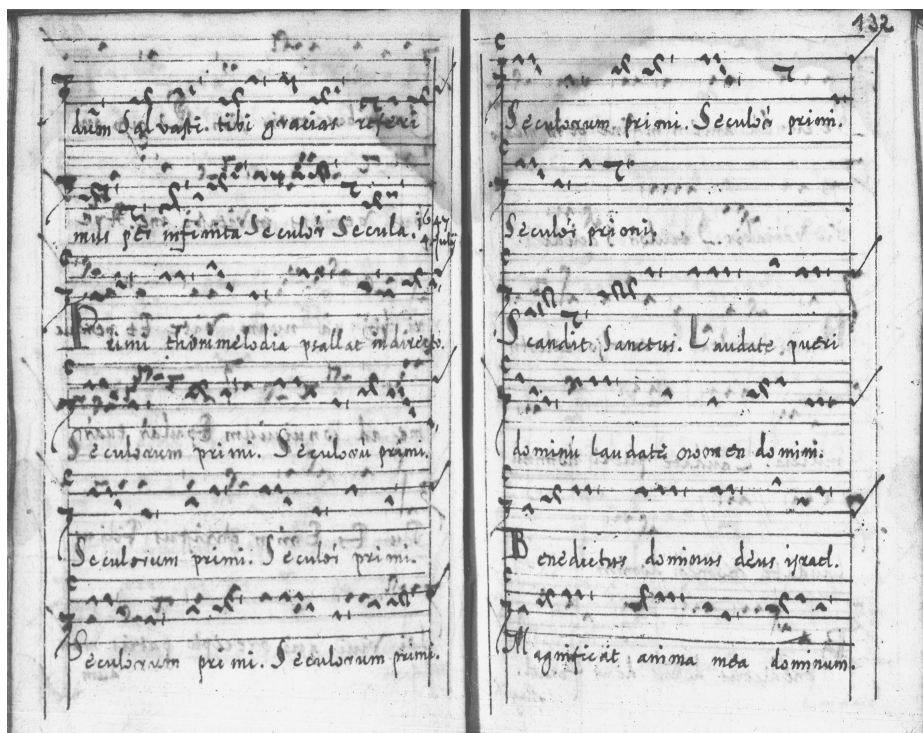 dum Salvasti. tibi gracias referi
mus per infinita Seculor Secula. 1647
Julij
Primi thoni melodia psallat in directo.
Seculorum primi. Seculoru primi.
Seculorum primi. Seculor primi.
Seculorum primi. Seculorum primi.
132
Seculorum primi. Seculor primi.
Seculor primi.
Scandit Sanctus. Laudate pueri
dominu laudate nomen domini.
Benedictus dominus deus israel.
Magnificat anima mea dominum.